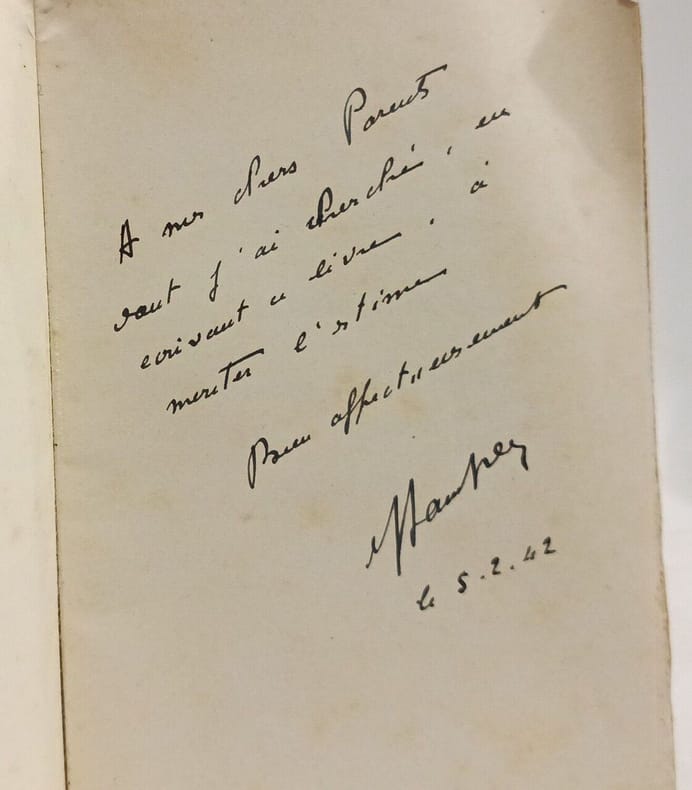 A mes chers Parents
dont j'ai cherché, en
ecrivant ce livre, à
meriter l'estime
Bien affectueusement
le 5.2.42